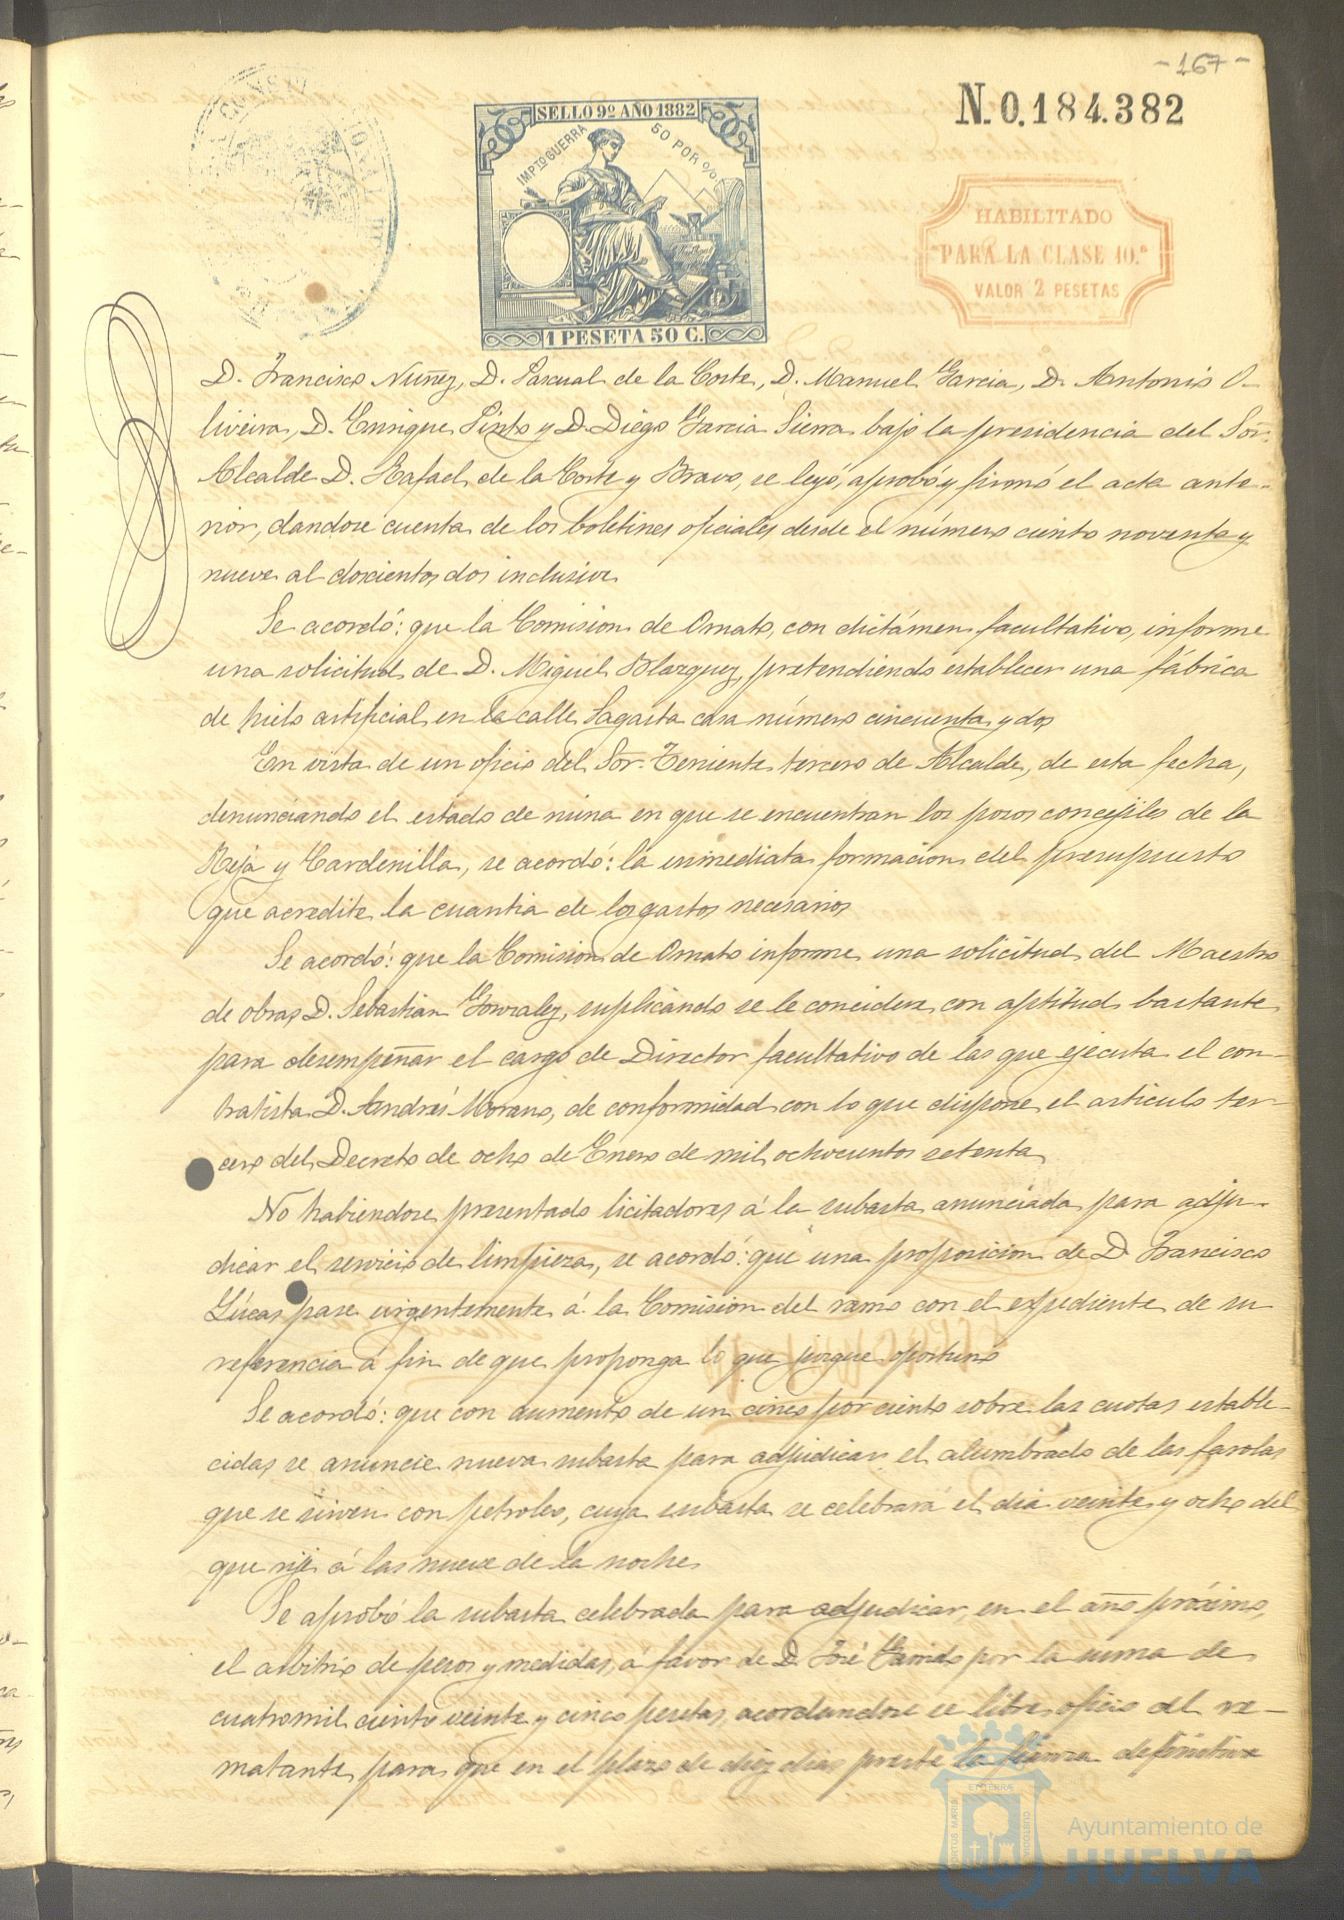 - 167 -
N. 0.184.382
CONSTITUCIONAL DE
SELLO 9º AÑO 1882
IMPTO GUERRA 50 POR %
1 PESETA 50 C.
HABILITADO
PARA LA CLASE 10.ª
VALOR 2 PESETAS
D. Francisco Nuñez, D. Pascual de la Corte, D. Manuel Garcia, D. Antonio O-
liveira, D. Enrique Pinto y D. Diego Garcia Sierra bajo la presidencia del Sor.
Alcalde D. Rafael de la Corte y Bravo, se leyó, aprobó y firmó el acta ante-
rior, dandose cuenta de los boletines oficiales desde el número ciento noventa y
nueve al doscientos dos inclusive
Se acordó: que la Comision de Ornato, con dictámen facultativo, informe
una solicitud de D. Miguel Blazquez, pretendiendo establecer una fábrica
de hielo artificial en la calle Sagasta casa número cincuenta y dos
En vista de un oficio del Sor. Teniente tercero de Alcalde, de esta fecha,
denunciando el estado de ruina en que se encuentran los pozos concejiles de la
Reja y Cardenilla, se acordó: la inmediata formacion del presupuesto
que acredite la cuantia de los gastos necesarios
Se acordó: que la Comision de Ornato informe una solicitud del Maestro
de obras D. Sebastian Gonzalez, suplicando se le concidere con aptitud bastante
para desempeñar el cargo de Director facultativo de las que ejecuta el con-
tratista D. Andrés Moreno, de conformidad con lo que dispone el articulo ter-
cero del Decreto de ocho de Enero de mil ochocientos setenta
No habiendose presentado licitadores á la subasta anunciada para adju-
dicar el servicio de limpieza, se acordó: que una proposicion de D. Francisco
Lúcas pase urgentemente á la Comision del ramo con el expediente de su
referencia á fin de que proponga lo que juzgue oportuno
Se acordó: que con aumento de un cinco por ciento sobre las cuotas estable-
cidas se anuncie nueva subasta para adjudicar el alumbrado de las farolas
que se sirven con petroleo, cuya subasta se celebrará el dia veinte y ocho del
que rije á las nueve de la noche
Se aprobó la subasta celebrada para adjudicar, en el año próximo,
el arbitrio de pesos y medidas, á favor de D. José Garrido por la suma de
cuatro mil ciento veinte y cinco pesetas, acordandose se libre oficio del re-
matante, para que en el plazo de diez dias preste la fianza definitiva
PORTUS MARIS ET TERRÆ CUSTODIA
Ayuntamiento de
HUELVA